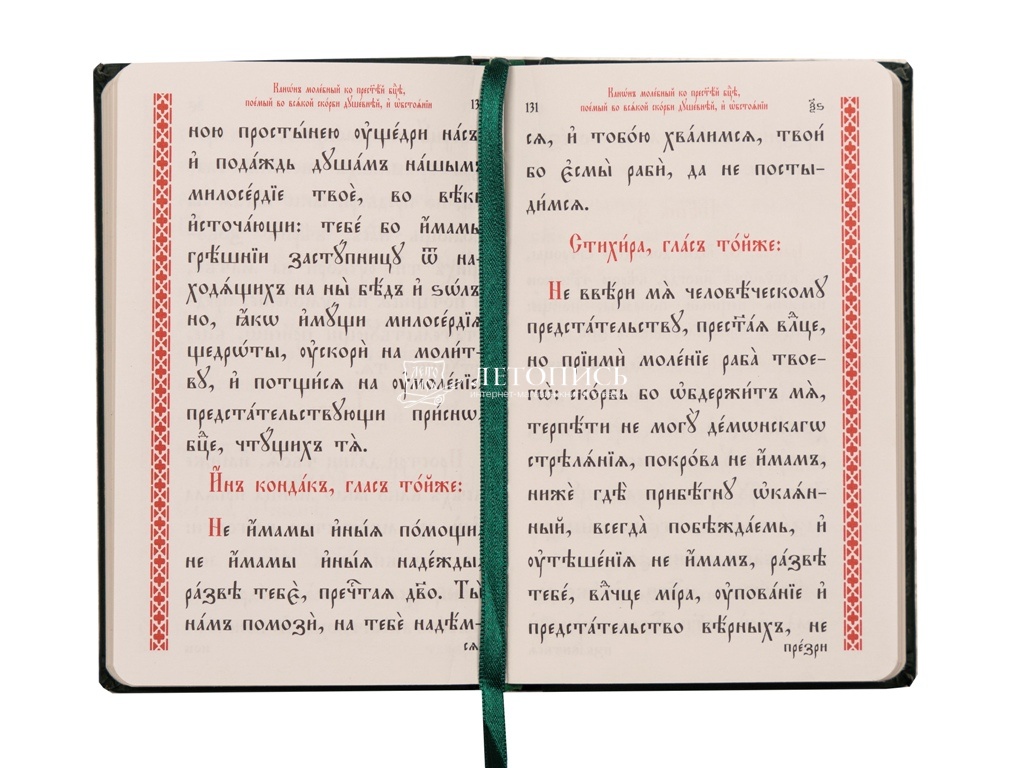 Канѡ́нъ моле́бный ко прест҃ѣ́й бцⷣѣ,
пое́мый во всѧ́кой ско́рби дꙋше́внѣй, и҆ ѡ҆бстоѧ́нїи
ною просты́нею оу҆ще́дри на́съ
и҆ пода́ждь дꙋша́мъ на́шым
милосе́рдїе твоѐ, во вѣ́ки
и҆сточа́ющи: тебе́ бо и҆́мамы
грѣ́шнїи застꙋ́пницꙋ ѿ на-
ходѧ́щихъ на ны̀ бѣ́дъ и҆ ѕѡ́лъ
но, ꙗ҆́кѡ и҆мꙋ́щи милосе́рдїѧ
щедрѡ́ты, оу҆скорѝ на моли́т-
вꙋ, и҆ потщи́сѧ на оу҆моле́нїе
предста́тельствꙋющи при́снѡ
бцⷣе, чтꙋ́щихъ тѧ̀.
И҆́нъ конда́къ, гла́съ то́йже:
Не и҆́мамы и҆ны́ѧ по́мощи
не и҆́мамы и҆ны́ѧ наде́жды
ра́звѣ тебє̀, пречⷭ҇таѧ дв҃о. Ты̀
на́мъ помозѝ, на тебѐ надѣ́ем-
сѧ
131
р҃ѕ
Канѡ́нъ моле́бный ко прест҃ѣ́й бцⷣѣ,
пое́мый во всѧ́кой ско́рби дꙋше́внѣй, и҆ ѡ҆бстоѧ́нїи
сѧ, и҆ тобо́ю хва́лимсѧ, твои́
бо є҆смы̀ рабѝ, да не посты-
ди́мсѧ.
Стихи́ра, гла́съ то́йже:
Не ввѣ́ри мѧ̀ человѣ́ческомꙋ
предста́тельствꙋ, прест҃а́ѧ влⷣчце,
но прїимѝ моле́нїе раба̀ твое-
гѡ̀: ско́рбь бо ѡ҆бдержи́тъ мѧ̀,
терпѣ́ти не могꙋ̀ де́мѡнскагѡ
стрѣлѧ́нїѧ, покро́ва не и҆́мамъ,
нижѐ гдѣ̀ прибѣ́гнꙋ ѡ҆каѧ́н-
ный, всегда̀ побѣжда́емь, и҆
оу҆тѣше́нїѧ не и҆́мамъ, ра́звѣ
тебє̀, влⷣчце мі́ра, оу҆пова́нїе и҆
предста́тельство вѣ́рныхъ, не
пре́зри
ЛЕТОПИСЬ